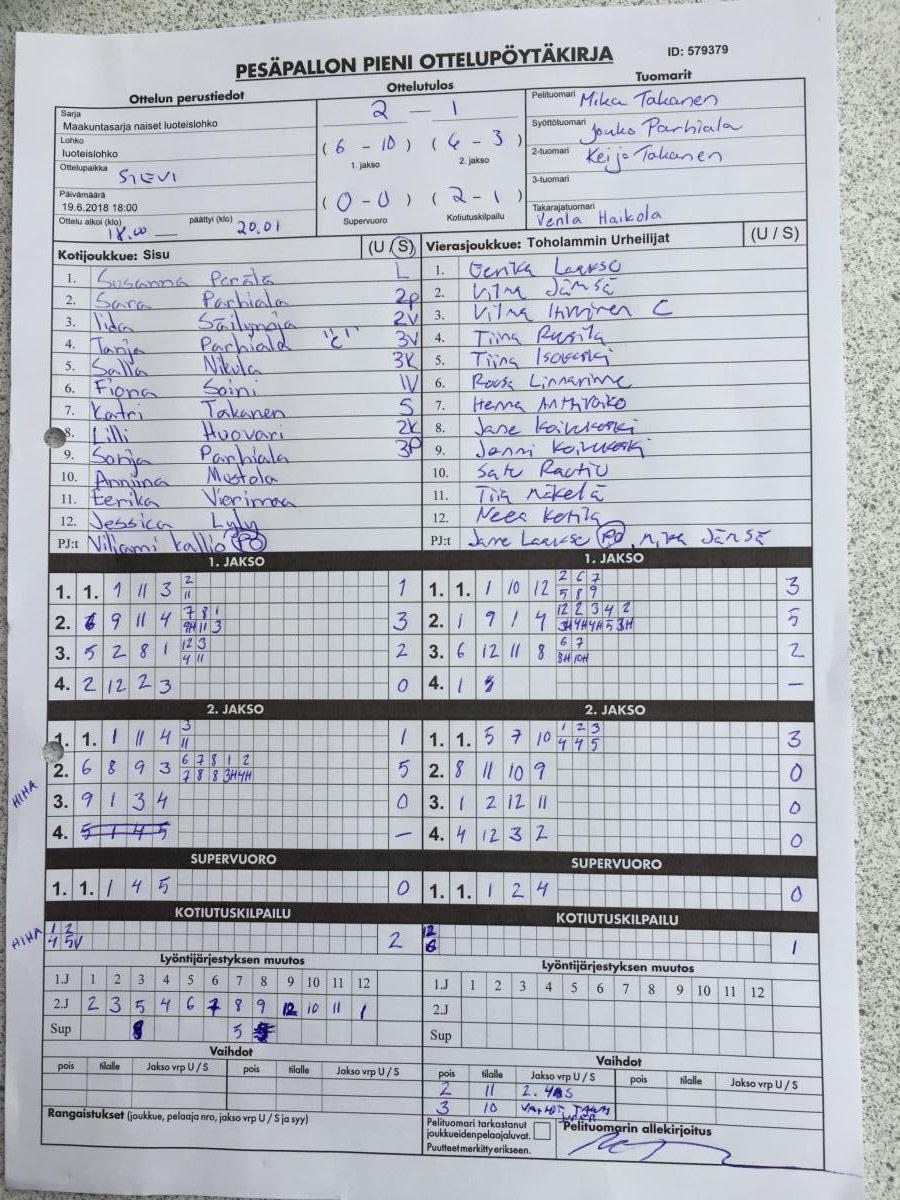 PESÄPALLON PIENI OTTELUPÖYTÄKIRJA
ID: 579379
Ottelun perustiedot
Ottelutulos
Tuomarit
Sarja
Maakuntasarja naiset luoteislohko
Lohko
luoteislohko
Ottelupaikka SIEVI
Päivämäärä
19.6.2018 18:00
Ottelu alkoi (klo) 18.00 päättyi (klo) 20.01
2 - 1
(6 - 10) (4 - 3)
1. jakso 2. jakso
(0 - 0) (2 - 1)
Supervuoro Kotiutuskilpailu
Pelituomari Mika Takanen
Syöttötuomari Jouko Parhiala
2-tuomari Keijo Takanen
3-tuomari
Takarajatuomari
Venla Haikola
Kotijoukkue: Sisu (U / S)
1. Susanna Perälä L
2. Sara Parhiala 2p
3. Iida Säilynoja 2V
4. Tanja Parhiala "C" 3V
5. Salla Nikula 3K
6. Fiona Soini 1V
7. Katri Takanen S
8. Lilli Huovari 2K
9. Sonja Parhiala 3P
10. Anniina Mustola
11. Eerika Vierimaa
12. Jessica Lyly
PJ:t Viljami Kallio PO
Vierasjoukkue: Toholammin Urheilijat (U / S)
1. Eerika Laakso
2. Vilma Jämsä
3. Vilma Ihminen C
4. Tiina
5. Tiina Isokoski
6. Roosa Linnarinne
7. Henna Anttiroiko
8. Jane Koivukoski
9. Jenni Koivukoski
10. Satu Rautio
11. Tiia Mäkelä
12. Neea Kotila
PJ:t Jane Laakso PO, Mika Jämsä
1. JAKSO
1. 1. 1 11 3 2 1
11
2. 6 9 11 4 7 8 1 3
9H 11 3
3. 5 2 8 1 12 3 2
4 11
4. 2 12 2 3 0
1. JAKSO
1. 1. 1 10 12 2 6 7 3
5 8 9
2. 1 9 1 4 12 2 3 4 2 5
3H 4H 4H 5 3H
3. 6 12 11 8 6 7 2
8H 10H
4. 1 8 -
2. JAKSO
1. 1. 1 11 4 3 1
11
2. 6 8 9 3 6 7 8 1 2 5
7 8 8 3H 4H
HIHA
3. 9 1 3 4 0
4. 5 1 4 5 -
2. JAKSO
1. 1. 5 7 10 1 2 3 3
4 4 5
2. 8 11 10 9 0
3. 1 2 12 11 0
4. 4 12 3 2 0
SUPERVUORO
1. 1. 1 4 5 0
SUPERVUORO
1. 1. 1 2 4 0
KOTIUTUSKILPAILU
HIHA
1 2 2
4 5V
KOTIUTUSKILPAILU
12 1
6
Lyöntijärjestyksen muutos
1.J 1 2 3 4 5 6 7 8 9 10 11 12
2.J 2 3 5 4 6 7 8 9 12 10 11 1
Sup 8 5
Lyöntijärjestyksen muutos
1.J 1 2 3 4 5 6 7 8 9 10 11 12
2.J
Sup
Vaihdot
pois tilalle Jakso vrp U / S pois tilalle Jakso vrp U / S
Vaihdot
pois tilalle Jakso vrp U / S pois tilalle Jakso vrp U / S
2 11
3 10
Rangaistukset (joukkue, pelaaja nro, jakso vrp U / S ja syy)
Pelituomari tarkastanut
joukkueiden pelaajaluvat.
Puutteet merkitty erikseen.
Pelituomarin allekirjoitus